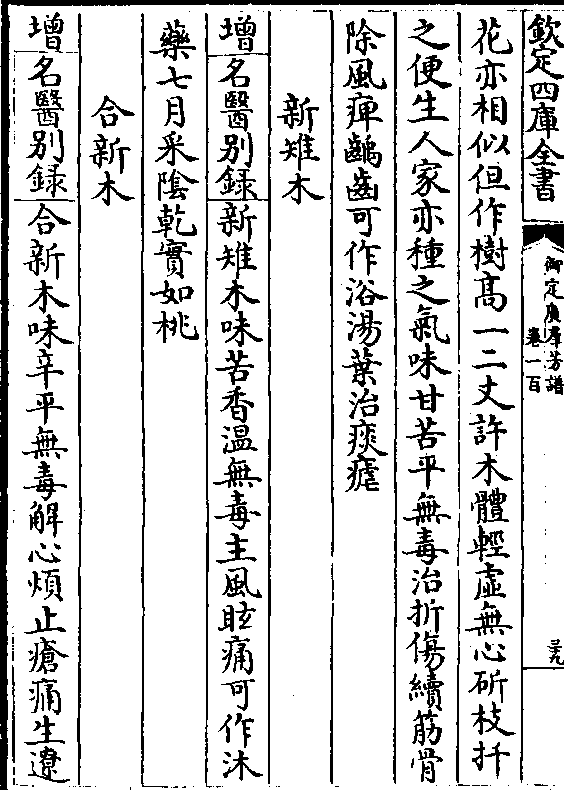 欽定四庫全書
御定廣羣芳譜
卷一百
三九
花亦相似但作樹髙一二丈許木體輕虚無心斫枝扦
之便生人家亦種之氣味甘苦平無毒治折傷續筋骨
除風痺齲齒可作浴湯葉治痰瘧
新雉木
增名醫别録新雉木味苦香温無毒主風眩痛可作沐
藥七月采陰乾實如桃
合新木
增名醫别録合新木味辛平無毒解心煩止瘡痛生遼